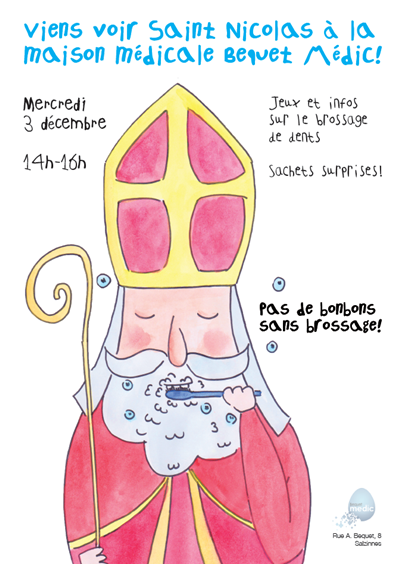 Viens voir Saint Nicolas à la
maison médicale Bequet Médic!
Mercredi
3 décembre
14h-16h
Jeux et infos
sur le brossage
de dents
Sachets surprises!
Pas de bonbons
sans brossage!
medic
Rue A. Bequet, 8
Salzinnes